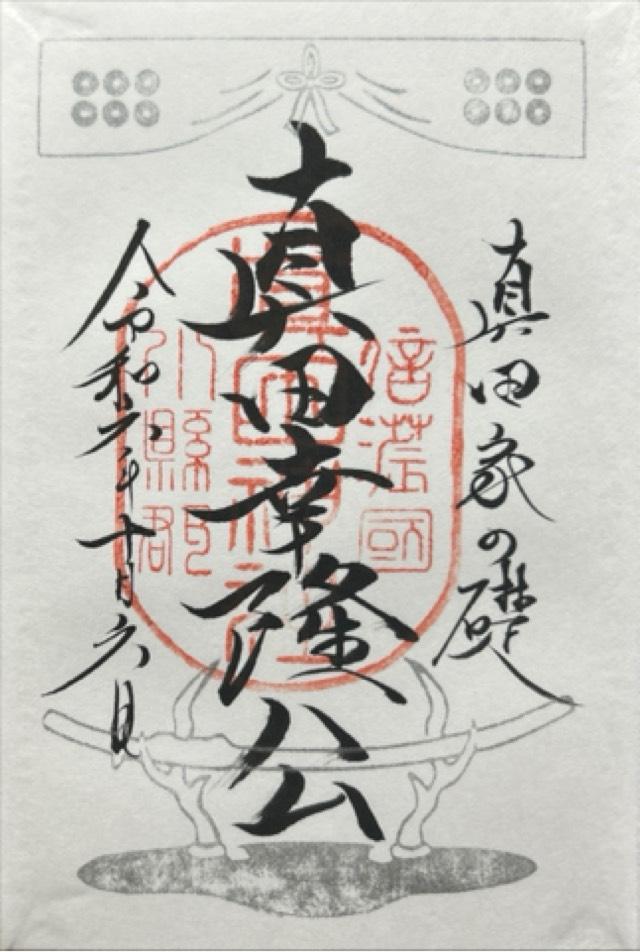 真田家の礎
真田幸隆公
令和六年十月六日
信濃國
真田神社
小縣郡